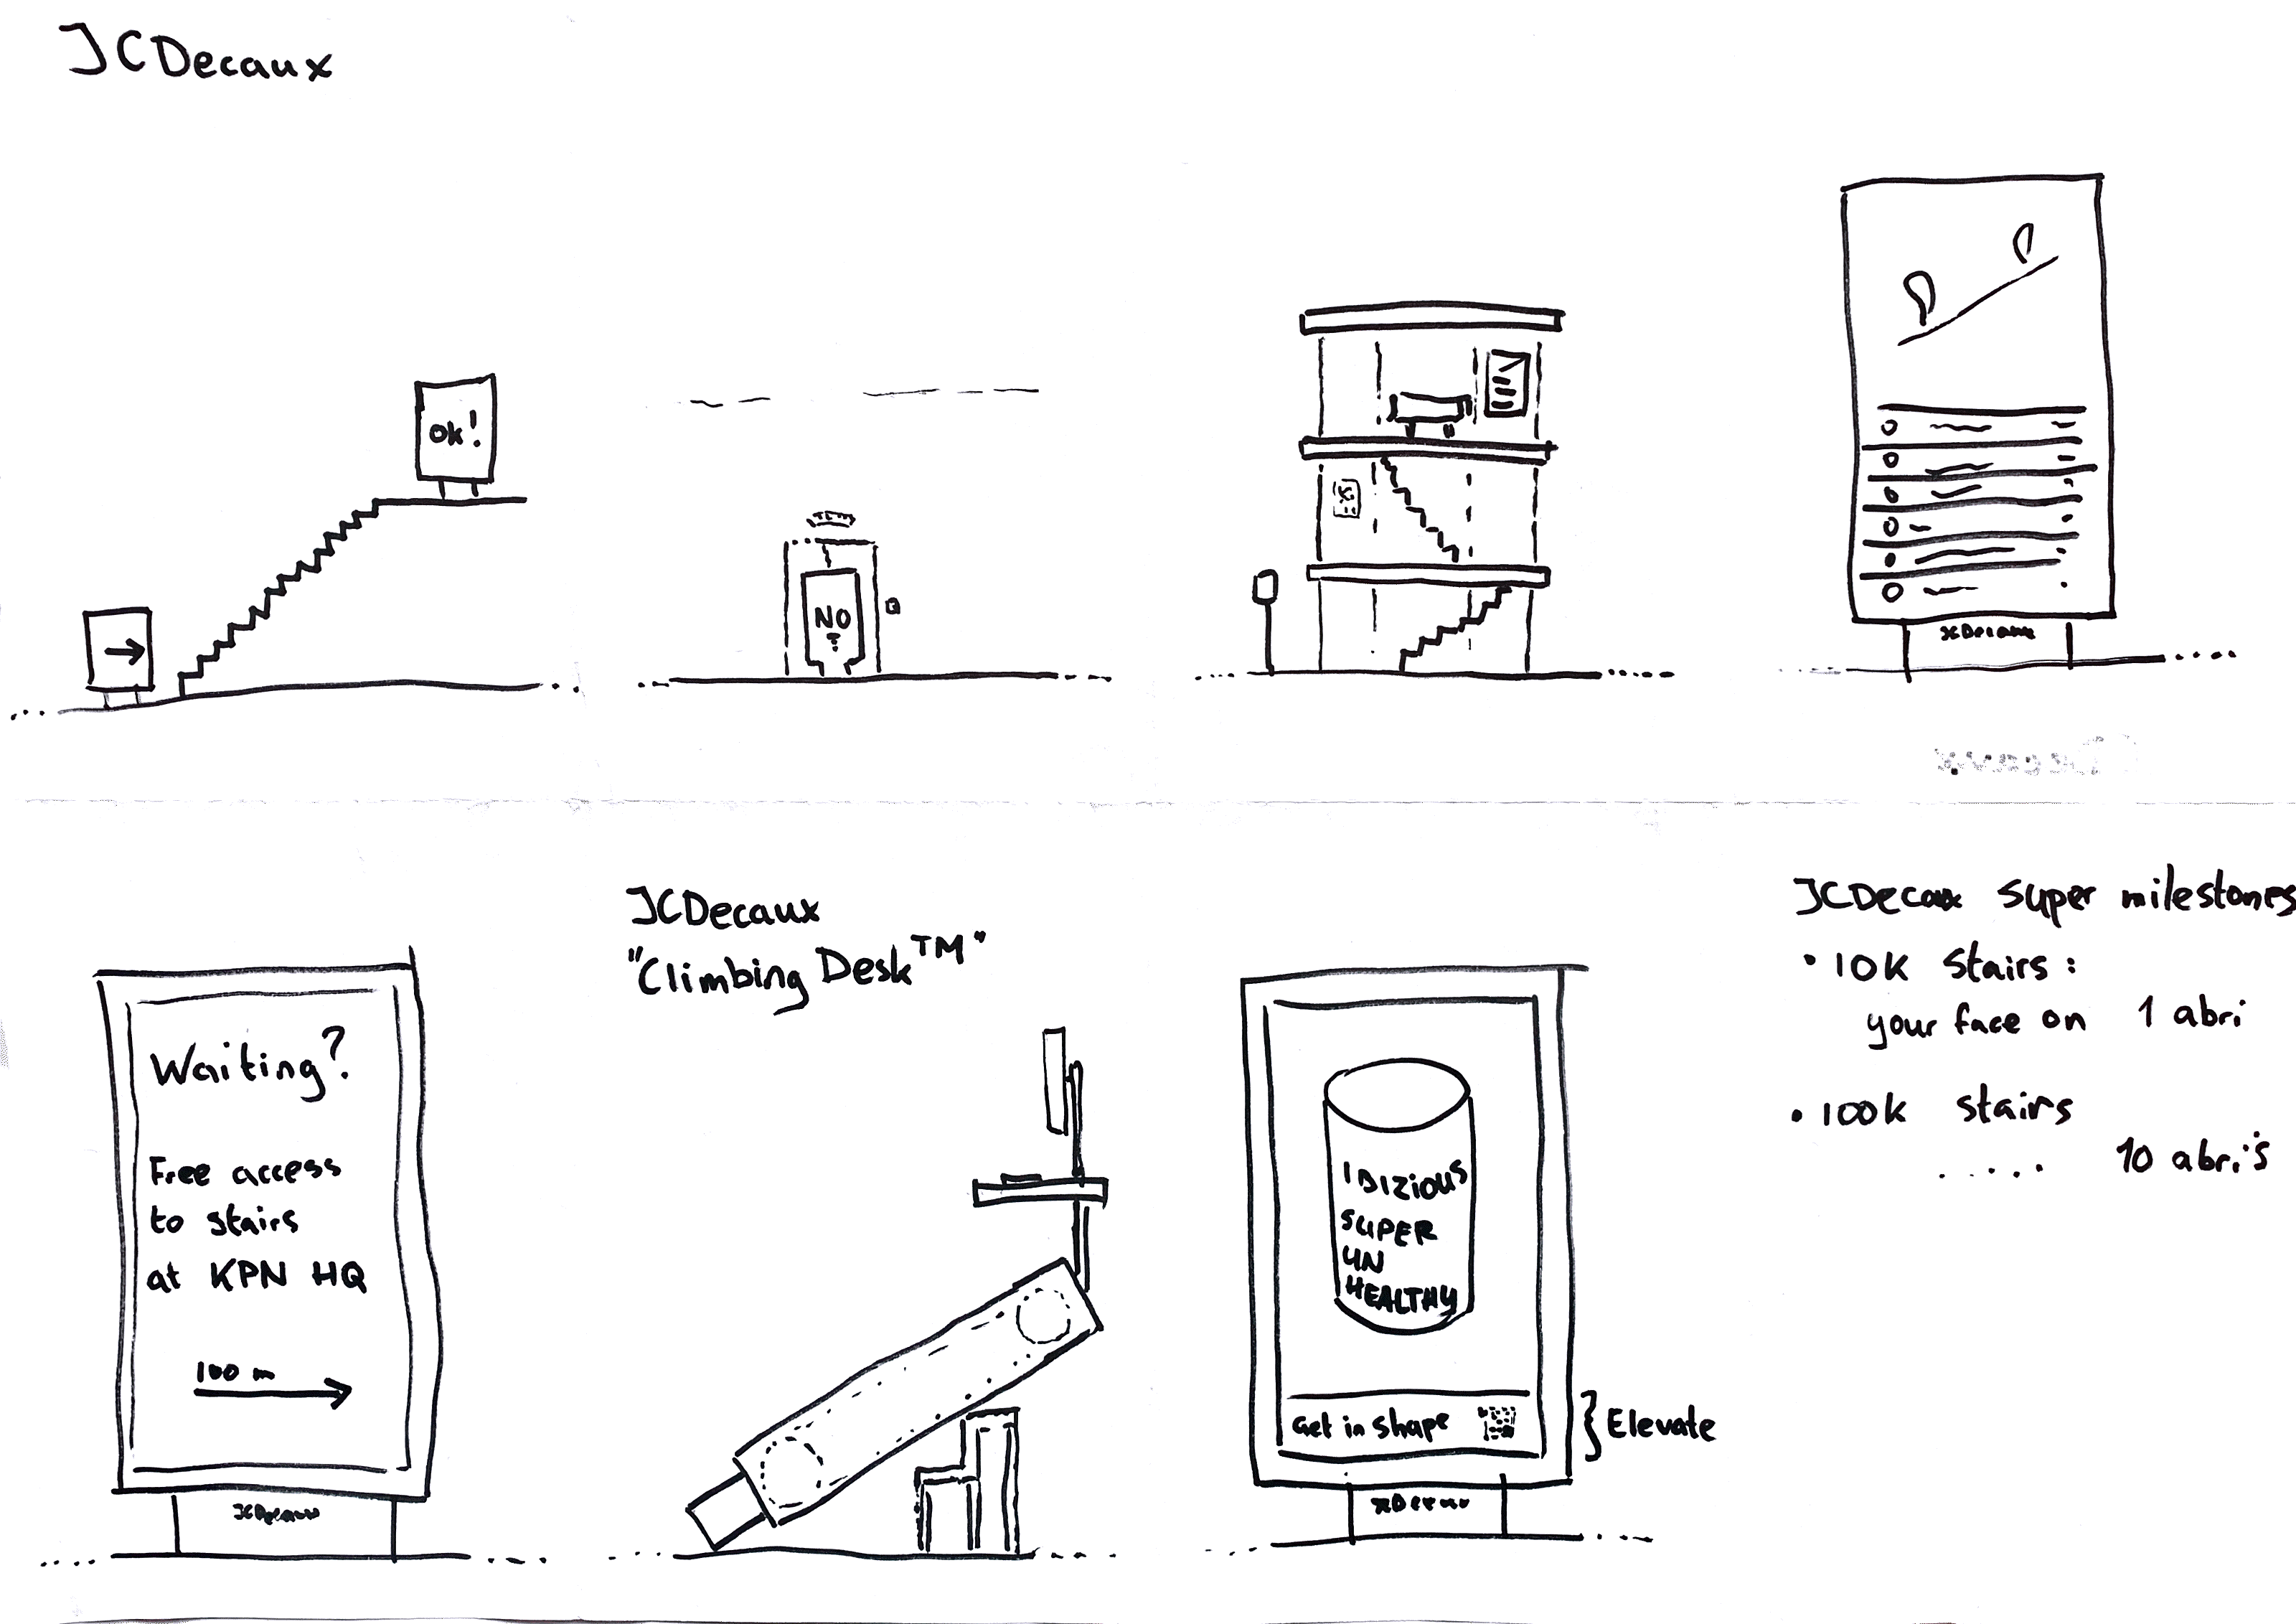 JCDecaux
OK!
→
NO
JCDecaux
Waiting?
Free access
to stairs
at KPN HQ
100 m
JCDecaux
JCDecaux
"Climbing Desk™"
SUPER
UN
HEALTHY
Get in shape
Elevate
JCDecaux
JCDecaux super milestones
• 10K stairs:
your face on 1 abri
• 100K stairs
..... 10 abri's